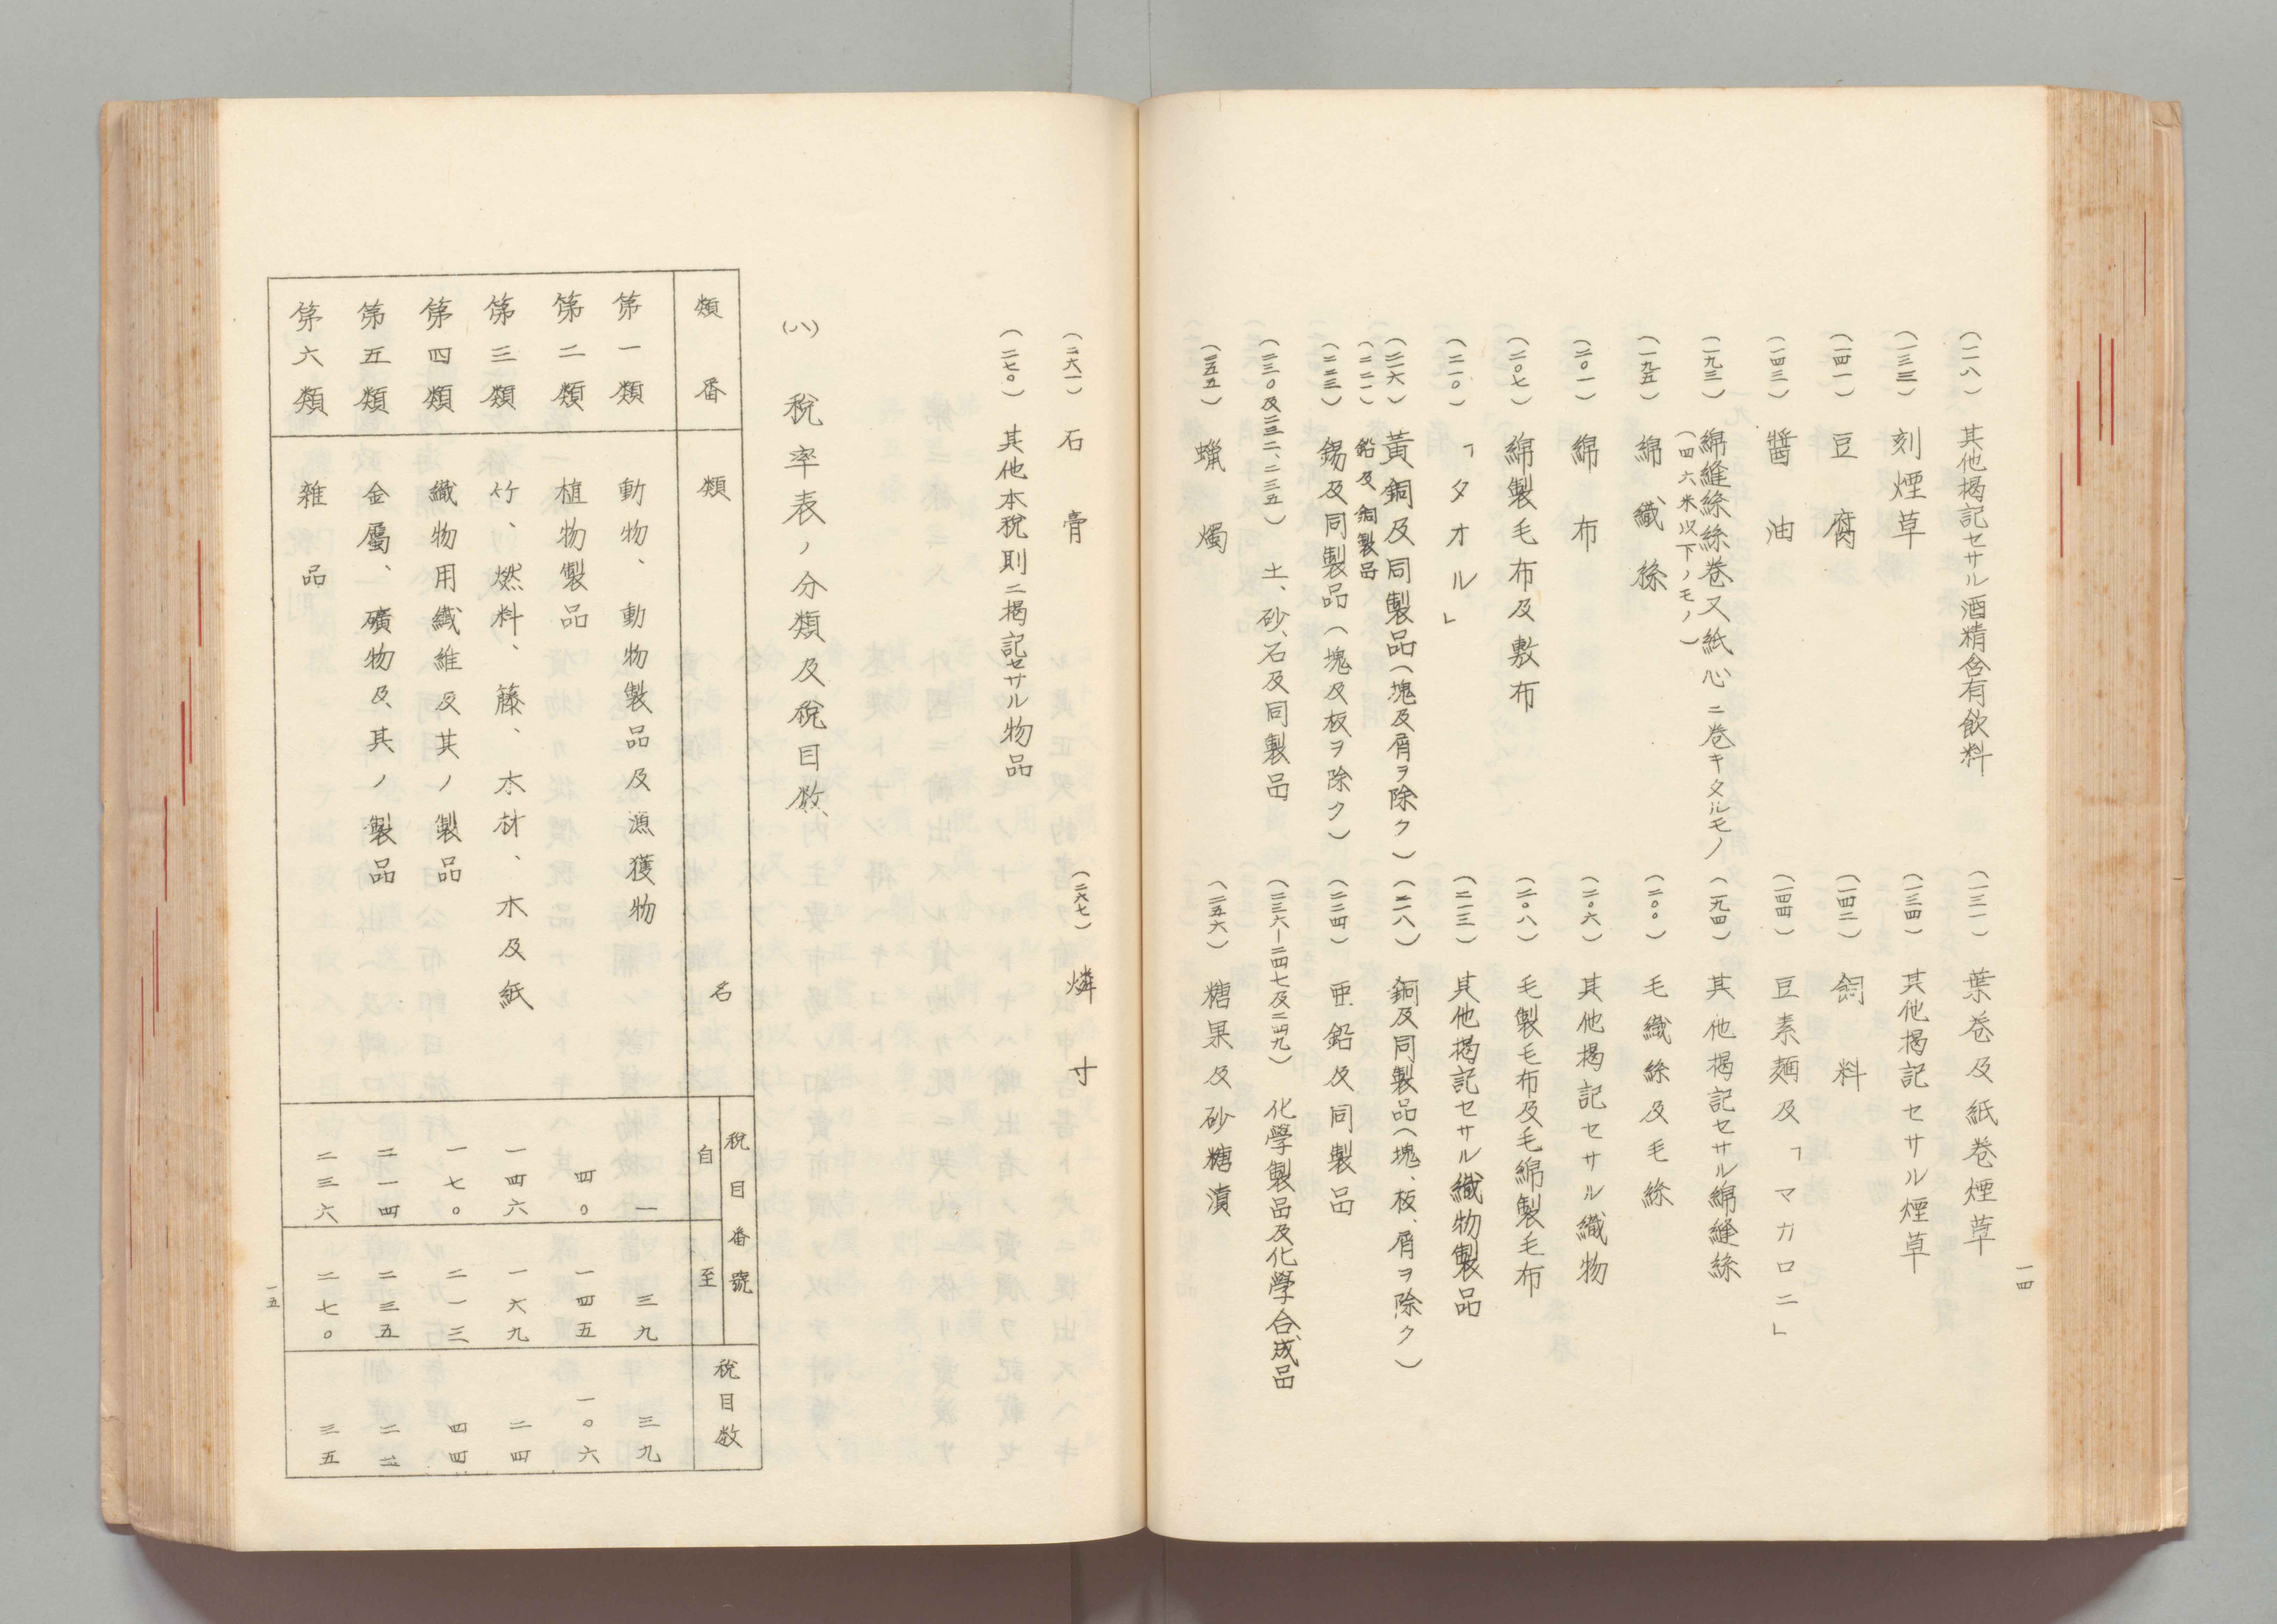 (一二八) 其他揭記セサル酒精含有飲料
(一三一) 葉卷及紙卷煙草
(一三三) 刻煙草
(一三四) 其他揭記セサル煙草
(一四一) 豆腐
(一四二) 飼料
(一四三) 醬油
(一四四) 豆素麵及「マカロニ」
(一九三) 綿縫絲絲卷又紙心ニ卷キタルモノ
(四六米以下ノモノ)
(一九四) 其他揭記セサル綿縫絲
(一九五) 綿織絲
(二〇〇) 毛織絲及毛絲
(二〇一) 綿布
(二〇六) 其他揭記セサル織物
(二〇七) 綿製毛布及敷布
(二〇八) 毛製毛布及毛綿製毛布
(二一〇) 「タオル」
(二一三) 其他揭記セサル織物製品
(二一六) 黃銅及同製品(塊及屑ヲ除ク)
(二一八) 銅及同製品(塊、板、屑ヲ除ク)
(二二一) 鉛及同製品
(二二三) 錫及同製品(塊及板ヲ除ク)
(二二四) 亜鉛及同製品
(二三〇及二三二、二三五) 土、砂、石及同製品
(二三六—二四七及二四九) 化學製品及化學合成品
(二五五) 蠟燭
(二五六) 糖果及砂糖漬
一四
(二六一) 石膏
(二六七) 燐寸
(二七〇) 其他本稅則ニ揭記セサル物品
(八) 稅率表ノ分類及稅目数
類番 類名 稅目番號 自 至 稅目数
第一類 動物、動物製品及漁獲物 一 三九 三九
第二類 植物製品 四〇 一四五 一〇六
第三類 竹、燃料、藤、木材、木及紙 一四六 一六九 二四
第四類 織物用纖維及其ノ製品 一七〇 二一三 四四
第五類 金屬、礦物及其ノ製品 二一四 二三五 二二
第六類 雜品 二三六 二七〇 三五
一五